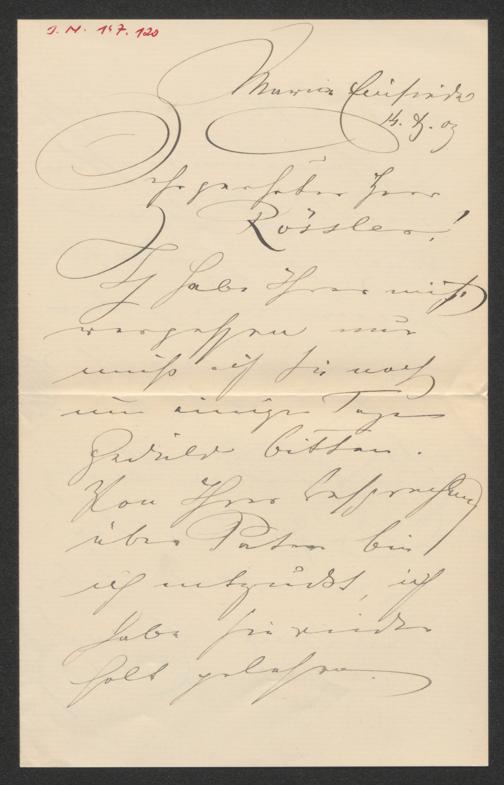 I. N. 147.120
Maria Enzersdorf
Sehr geehrter Herr
Rössler!
Ich habe Ihrer nicht
vergessen nur
muß ich Sie noch
um einige Tage
Geduld bitten.
Von Ihrer Besprechung
über Peter bin
ich entzückt, ich
habe sie wieder
holt gelesen.